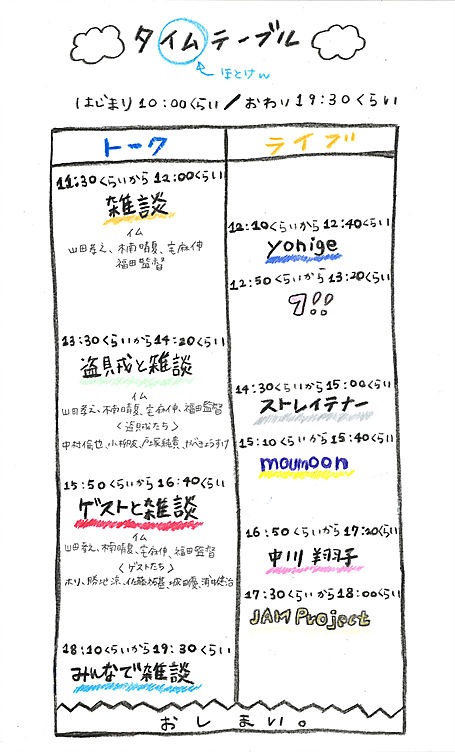 タイムテーブル
ほとけw
はじまり10:00くらい/おわり19:30くらい
トーク
ライブ
11:30くらいから12:00くらい
雑談
イム
山田孝之、木南晴夏、宅麻伸
福田監督
12:10くらいから12:40くらい
yonige
12:50くらいから13:20くらい
7!!
13:30くらいから14:20くらい
盗賊と雑談
イム
山田孝之、木南晴夏、宅麻伸、福田監督
〈盗賊たち〉
中村倫也、小柳友、戸塚純貴、
14:30くらいから15:00くらい
ストレイテナー
15:10くらいから15:40くらい
moumoon
15:50くらいから16:40くらい
ゲストと雑談
イム
山田孝之、木南晴夏、宅麻伸、福田監督
〈ゲストたち〉
ホリ、勝地涼、佐藤裕基、
16:50くらいから17:20くらい
中川翔子
17:30くらいから18:00くらい
JAM Project
18:10くらいから19:30くらい
みんなで雑談
おしまい。